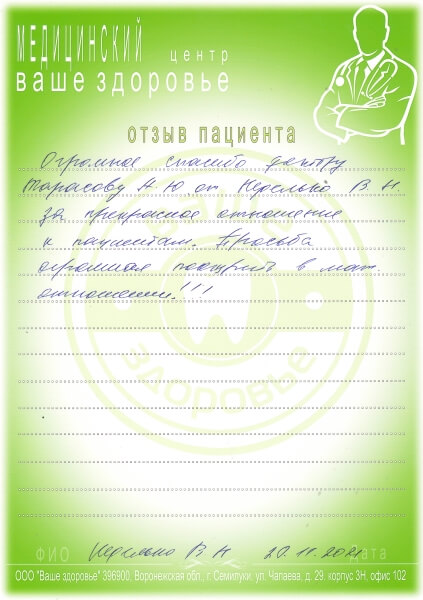 МЕДИЦИНСКИЙ центр
ваше здоровье
отзыв пациента
Огромное спасибо доктору
Тарасову А.Ю. от В.Н.
за прекрасное отношение
к пациентам. Просьба
огромная поощрить в мат.
отношении!!!
ЗДОРОВЬЕ
ФИО В Н 20.11.2021 дата
ООО "Ваше здоровье" 396900, Воронежская обл., г. Семилуки, ул. Чапаева, д. 29, корпус 3Н, офис 102